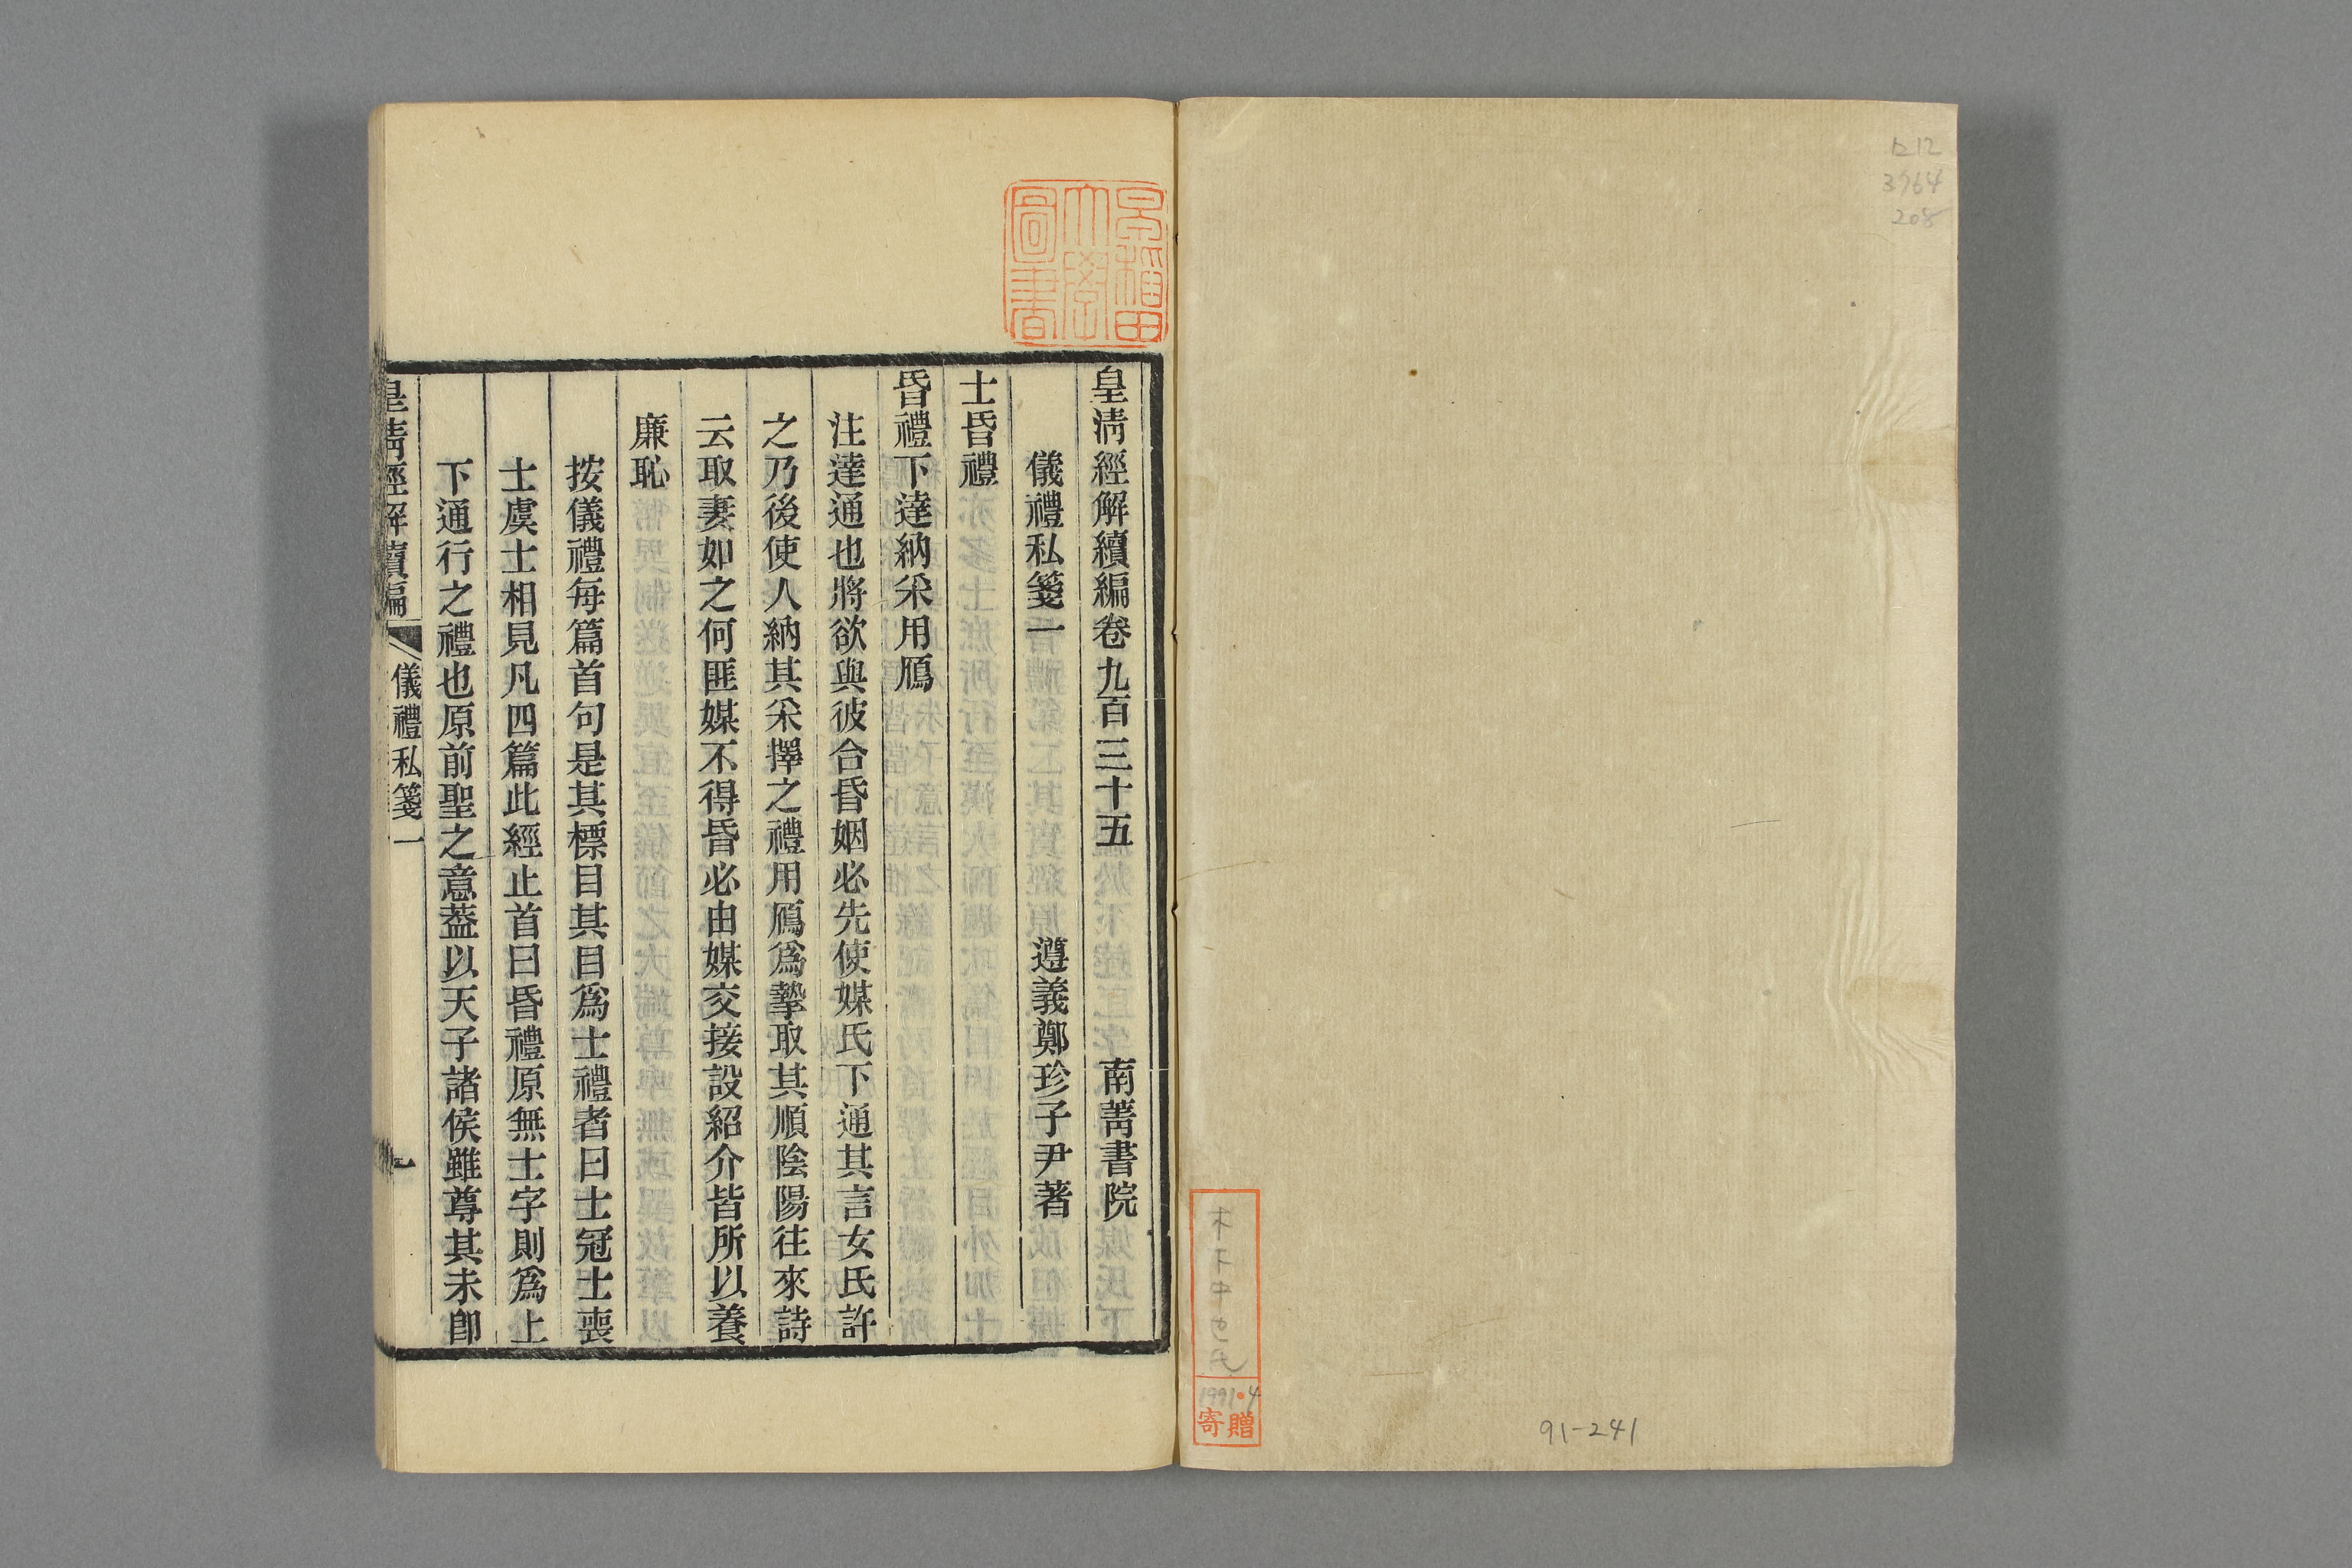 1212
3964
208
木下中也氏
1991.4
寄贈
91-241
早稲田大學圖書
皇清經解續編卷九百三十五 南菁書院
儀禮私箋一 遵義鄭珍子尹著
士昏禮
昏禮下達納采用鴈
注達通也將欲與彼合昏姻必先使媒氏下通其言女氏許
之乃後使人納其采擇之禮用鴈爲摯取其順陰陽往來詩
云取妻如之何匪媒不得昏必由媒交接設紹介皆所以養
廉恥
按儀禮每篇首句是其標目其目爲士禮者曰士冠士喪
士虞士相見凡四篇此經止首曰昏禮原無士字則爲上
下通行之禮也原前聖之意葢以天子諸侯雖尊其未卽
皇清經解續編 儀禮私箋一 一